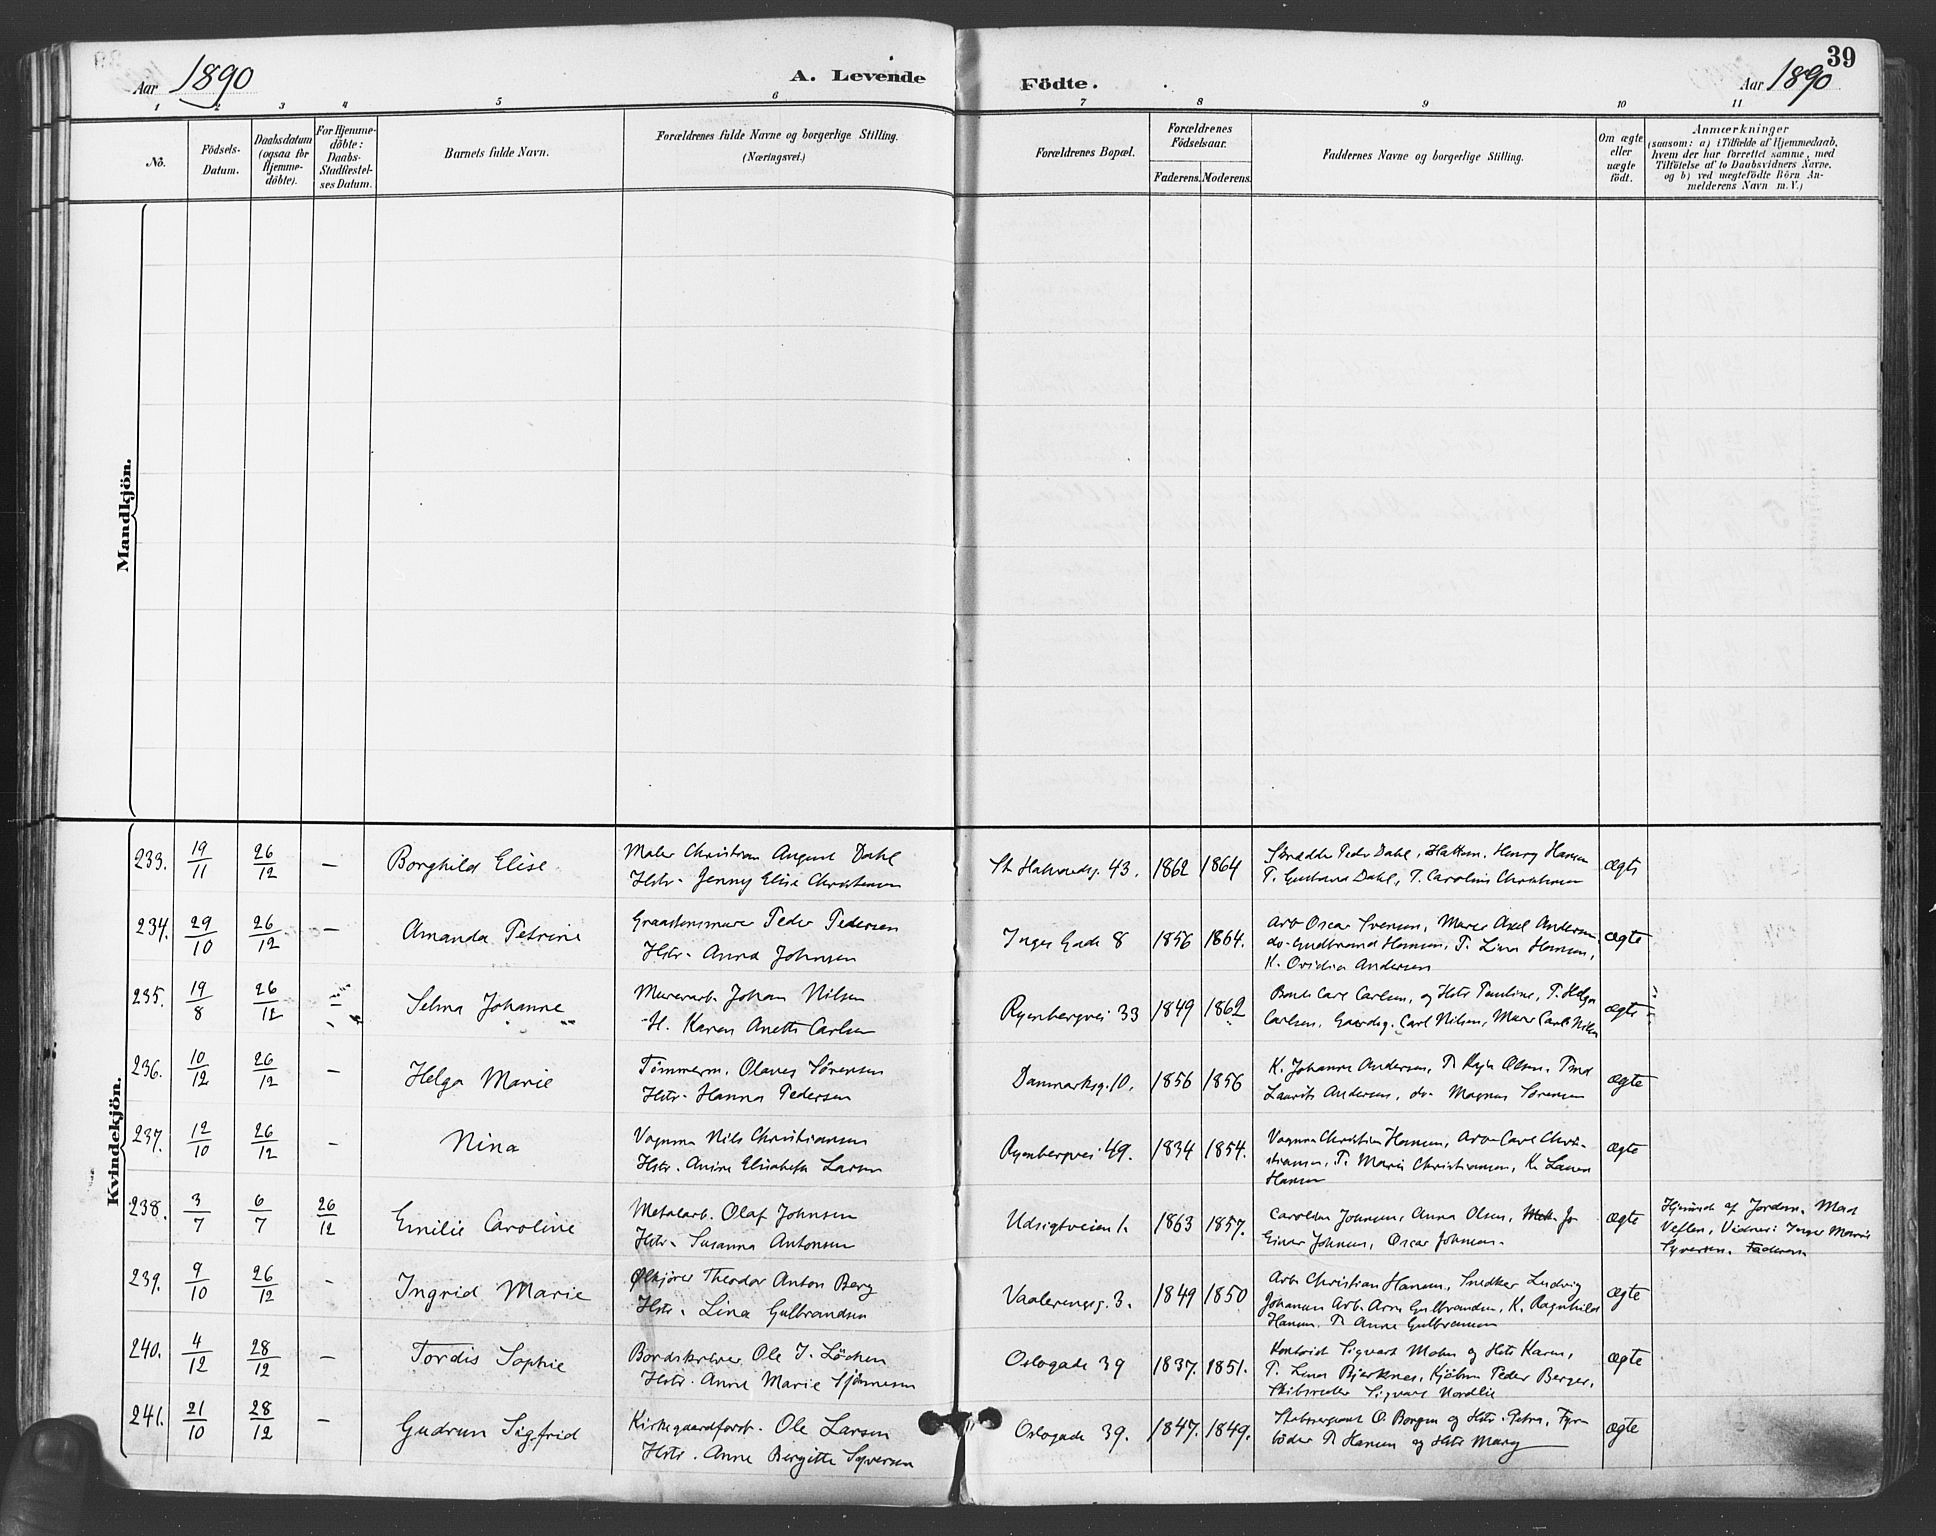 39
Aar 1890
A. Levende
Födte.
Aar 1890
1 2 3 4 5 6 7 8 9 10 11
No.
Födsels-
Datum.
Daabsdatum
(ogsaa for
Hjemme-
döbte).
For Hjemme-
döbte:
Daabs-
Stadfæstel-
ses Datum.
Barnets fulde Navn.
Forældrenes fulde Navne og borgerlige Stilling.
(Næringsvei.)
Forældrenes Bopæl.
Forældrenes
Födselsaar.
Faderens. Moderens.
Faddernes Navne og borgerlige Stilling.
Om ægte
eller
uægte
født.
Anmærkninger
(saasom: a) i Tilfælde af Hjemmedaab,
hvem der har forrettet samme, med
Tilföielse af to Daabsvidners Navne,
og b) ved uægtefödte Börn An-
melderens Navn m. V.)
Mandkjön.
Kvindekjön.
233. 19/11 26/12 — Borghild Elise
Maler Christian August Dahl
Hstr. Jenny Elise Christensen
St Halvardsg. 43. 1862 1864
Peder Dahl, Henry Hansen
T. Gustava Dahl, T. Caroline
ægte
234. 29/10 26/12 — Amanda Petrine
Graastensmurer Peder Pedersen
Hstr. Anna Johnsen
Inges Gade 8 1856 1864.
Arb Oscar Svensen, Murer Axel Andersen,
do. Gudbrand Hansen, P. Lina Hansen,
K. Ovidia Andersen
ægte
235. 19/8 26/12 — Selma Johanne
Murerarb. Johan Nilsen
H. Karen Anette Carlsen
Ryenbergvei 33 1849 1862
Carl Carlsen, og Hstr Pauline, P. Helga
Carlsen, Gaardsg. Carl Nilsen, Murer Carl Nilsen
ægte
236. 10/12 26/12 — Helga Marie
Tömmerm. Olaves Sørensen
Hstr. Hanna Pedersen
Danmarksg. 10. 1856 1856
K. Johanne Andersen, Olsen,
Laurits Andersen, do. Magnus Sørensen
ægte
237. 12/10 26/12 — Nina
Vognm Nils Christiansen
Hstr. Anine Elisabeth Larsen
Ryenbergvei 49. 1834 1854.
Vognm Christian Hansen, Arb. Carl Chri-
stiansen, P. Marie Christiansen, K. Laura
Hansen
ægte
238. 3/7 6/7 26/12 Emilie Caroline
Metalarb. Olaf Johnsen
Hstr. Susanna Antonsen
Udsigtveien 1. 1863 1857.
Johnsen, Anna Olsen,
Einar Johnsen, Oscar Johnsen.
ægte
af Jordm.
Vidner: Inger Marie
Syversen, Faderen
239. 9/10 26/12 — Ingrid Marie
Ølkjører Theodor Anton Berg
Hstr. Lina Gulbrandsen
Vaalerengg. 3. 1849 1850
Arb. Christian Hansen, Snedker Ludvig
Johansen Arb. Arne Gulbrandsen, K. Ragnhild
Hansen. P. Anne Gulbransen
ægte
240. 4/12 28/12 — Tordis Sophie
Bordskriver Ole J. Löchen
Hstr. Anne Marie
Oslogade 39 1837. 1851.
Sigvart Mohn og Hstr Karen,
P. Lena Bjerknes, Kjöbm Peder Berger,
Skibsreder Sigvart Nordlie
ægte
241. 21/10 28/12 — Gudrun Sigfrid
Kirkegaardforst. Ole Larsen
Hstr. Anne Birgitte Syversen
Oslogade 39. 1847. 1849.
O. Bongen og Hstr. Petra, Fyr
böder P. Hansen og Hstr Mary
ægte